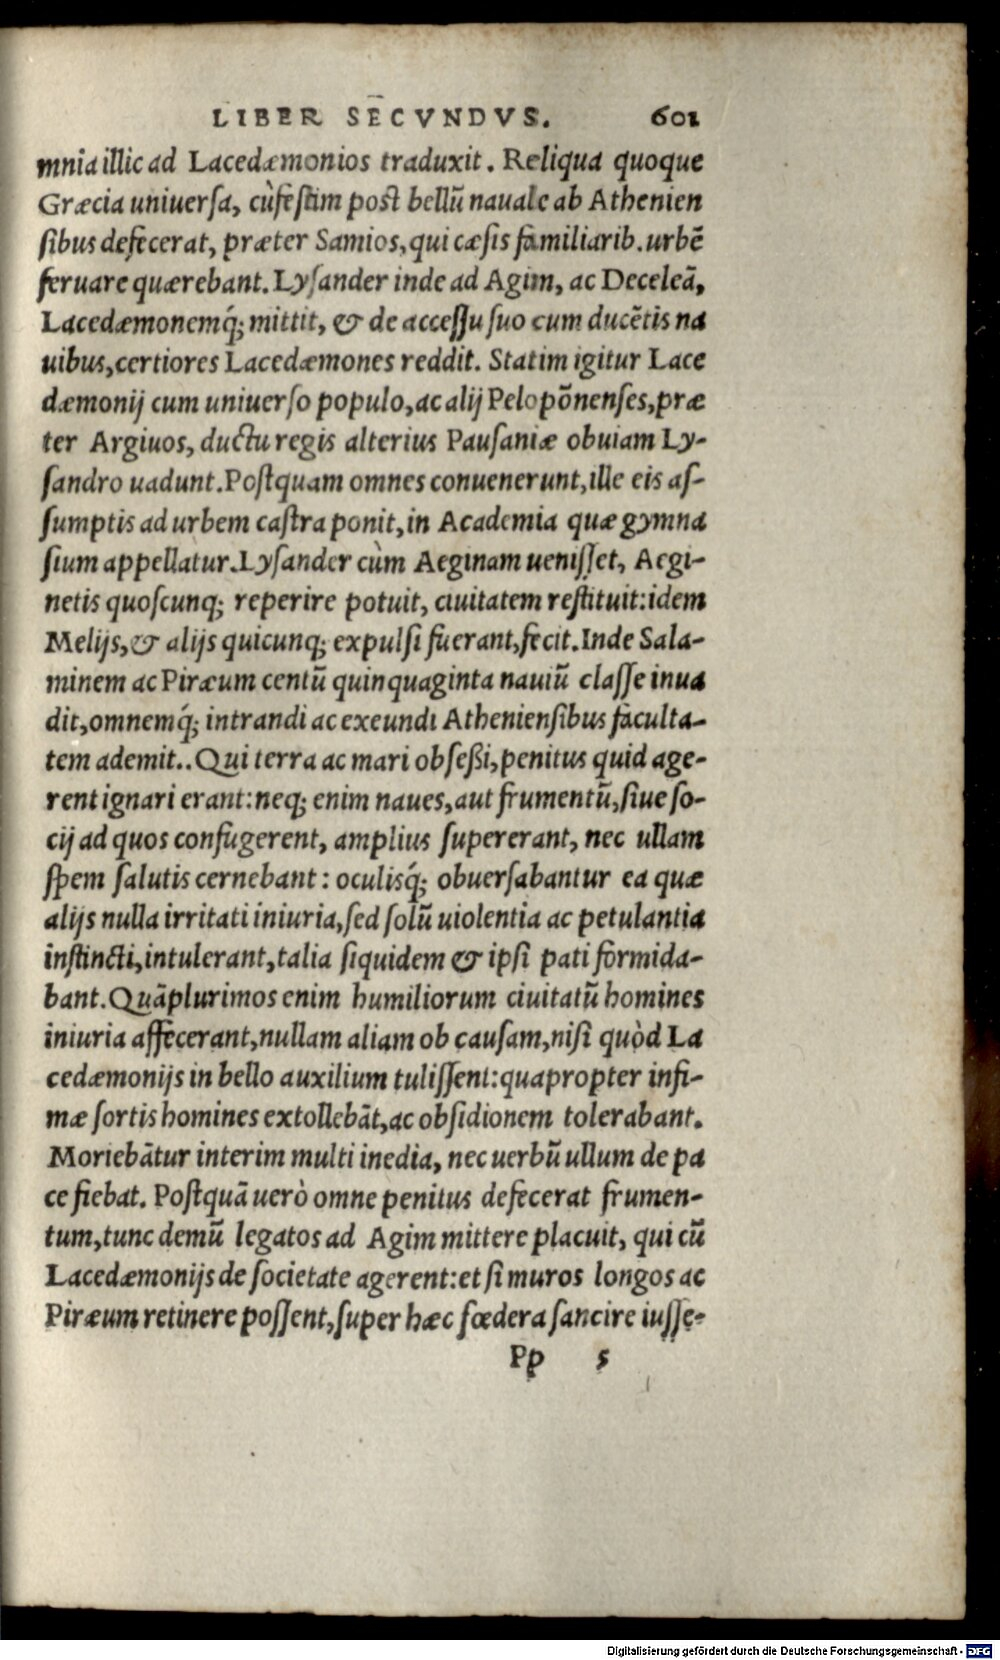 LIBER SECVNDVS. 601
mnia illic ad Lacedæmonios traduxit. Reliqua quoque
Græcia uniuersa, cùfestim post bellũ nauale ab Athenien
sibus defecerat, præter Samios, qui cæsis familiarib. urbẽ
seruare quærebant. Lysander inde ad Agim, ac Deceleã,
Lacedæmonemq́; mittit, & de accessu suo cum ducẽtis na
uibus, certiores Lacedæmones reddit. Statim igitur Lace
dæmonij cum uniuerso populo, ac alij Pelopõnenses, præ
ter Argiuos, ductu regis alterius Pausaniæ obuiam Ly-
sandro uadunt. Postquam omnes conuenerunt, ille eis as-
sumptis ad urbem castra ponit, in Academia quæ gymna
sium appellatur. Lysander cùm Aeginam uenisset, Aegi-
netis quoscunq; reperire potuit, ciuitatem restituit: idem
Melijs, & alijs quicunq; expulsi fuerant, fecit. Inde Sala-
minem ac Piræum centũ quinquaginta nauiũ classe inua
dit, omnemq́; intrandi ac exeundi Atheniensibus faculta-
tem ademit.. Qui terra ac mari obseßi, penitus quid age-
rent ignari erant: neq; enim naues, aut frumentũ, siue so-
cij ad quos confugerent, amplius supererant, nec ullam
spem salutis cernebant: oculisq́; obuersabantur ea quæ
alijs nulla irritati iniuria, sed solũ uiolentia ac petulantia
instincti, intulerant, talia siquidem & ipsi pati formida-
bant. Quãplurimos enim humiliorum ciuitatũ homines
iniuria affecerant, nullam aliam ob causam, nisi quòd La
cedæmonijs in bello auxilium tulissent: quapropter infi-
mæ sortis homines extollebãt, ac obsidionem tolerabant.
Moriebãtur interim multi inedia, nec uerbũ ullum de pa
ce fiebat. Postquã uerò omne penitus defecerat frumen-
tum, tunc demũ legatos ad Agim mittere placuit, qui cũ
Lacedæmonijs de societate agerent: et si muros longos ac
Piræum retinere possent, super hæc fœdera sancire iusse-
Pp 5
Digitalisierung gefördert durch die Deutsche Forschungsgemeinschaft - DFG